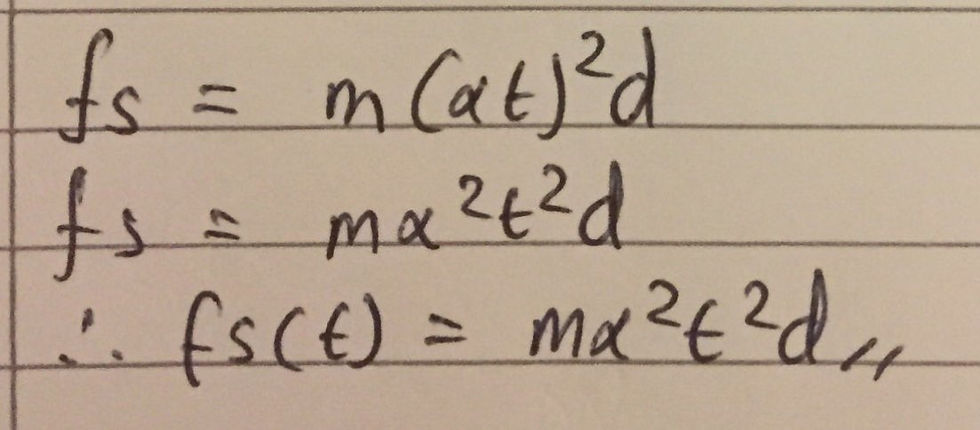 fs = m(αt)²d
fs = mα²t²d
∴ fs(t) = mα²t²d,,